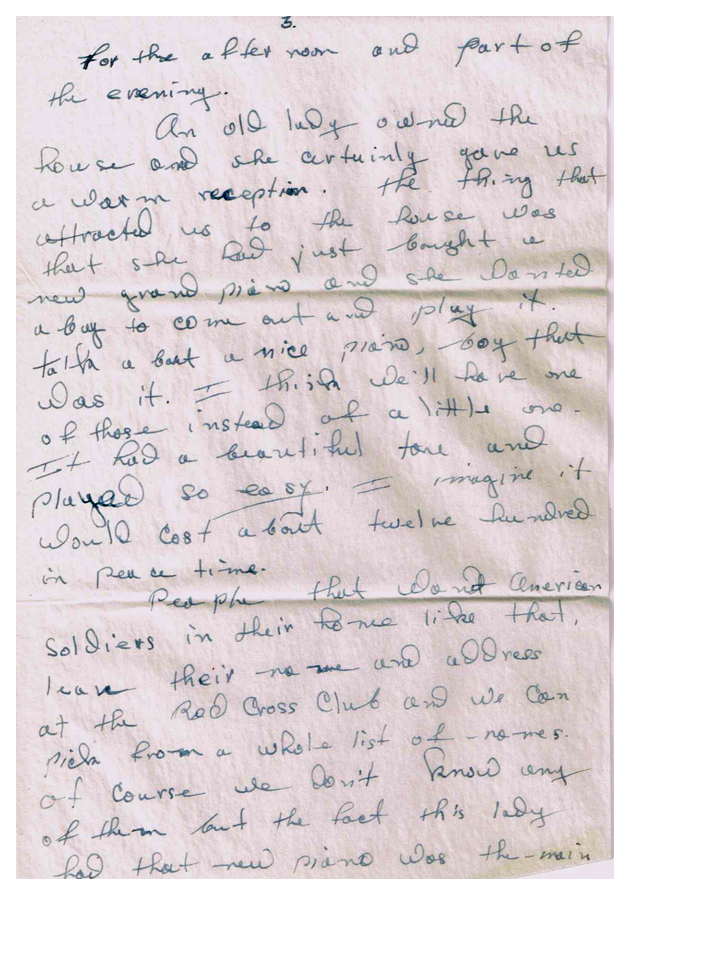 3.
for the afternoon and part of
the evening.
An old lady owned the
house and she certuinly gave us
a warm reception. the thing that
attracted us to the house was
that she had just bought a
new grand piano and she wanted
a boy to come out and play it.
talk a bout a nice piano, boy that
was it. I think we'll have one
of those instead of a little one.
It had a beautiful tone and
played so easy. I imagine it
would cost about twelve hundred
in peace time.
People that want American
soldiers in their home like that,
leave their name and address
at the Red Cross Club and we can
pick from a whole list of names.
of course we don't know any
of them but the fact this lady
had that new piano was the main